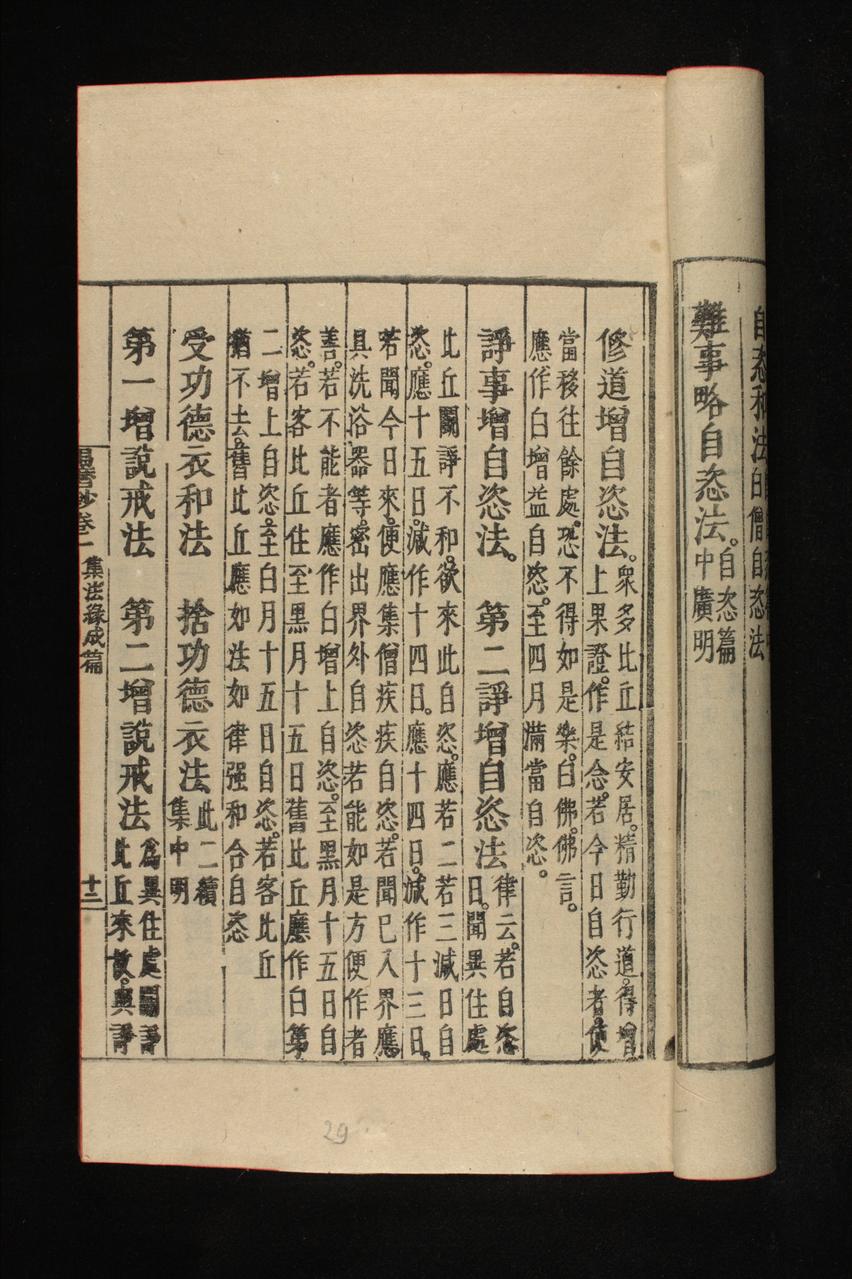 自恣和法白僧自恣法
難事略自恣法。自恣篇
中廣明
修道增自恣法。衆多比丘結安居。精勤行道。得增
上果證。作是念。若今日自恣者便
當移往餘處。恐不得如是樂。白佛。佛言。
應作白增益自恣。至四月滿當自恣。
諍事增自恣法。 第二諍增自恣法律云。若自恣
日。聞異住處
比丘鬭諍不和。欲來此自恣。應若二若三減日自
恣。應十五日。減作十四日。應十四日。減作十三日。
若聞今日來。便應集僧疾疾自恣。若聞已入界應
具洗浴器等。密出界外自恣若能如是方便作者
善。若不能者應作白增上自恣。至黑月十五日自
恣。若客比丘住至黑月十五日舊比丘應作白第
二增上自恣。至白月十五日自恣。若客比丘
猶不去。舊比丘應如法如律强和合自恣
受功德衣和法 捨功德衣法此二續
集中明
第一增說戒法 第二增說戒法爲異住處鬭諍
比丘來故。與諍
集法緣成篇
十二
29